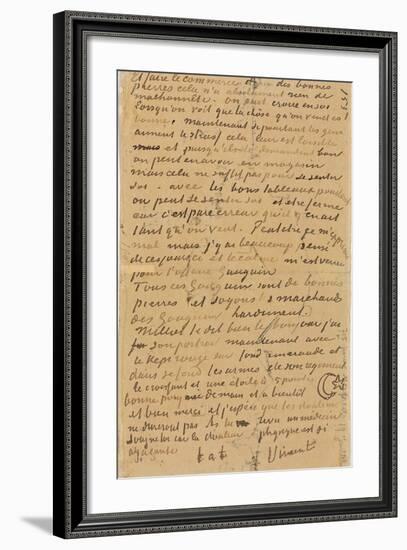 et faire le commerce des bonnes
pierres cela n'a absolument rien de
malhonnête. on peut croire en soi
lorsqu'on voit que la chose qu'on vend est
bonne. maintenant pourtant les gens
aiment le cela leur est loisible
mais et puisqu'ils le demandent bon
on peut en avoir en magasin
mais cela ne suffit pas pour se sentir
sûr. avec les bons tableaux pourtant
on peut se sentir sûr et être ferme
car c'est par erreur qu'il y en ait
tant qu'on veut. Peut être je m'exprime
mal mais j'y ai beaucoup pensé
de ces jours ci et le calme m'est venu
pour l'affaire Gauguin
Tous ces Gauguin sont de bonnes
pierres et soyons les marchands
des Gauguin hardiment.
Milliet te dit bien le bonjour j'ai
son portrait maintenant avec
le Kepi rouge sur fond émeraude et
dans ce fond les armes de son regiment
le croissant et une étoile à 5 pointes
bonne poignée de main et à bientôt
et bien merci et j'espère que les
ne dureront pas vu un médecin
Soigne toi car la douleur physique est si
agaçante t. à t. Vincent